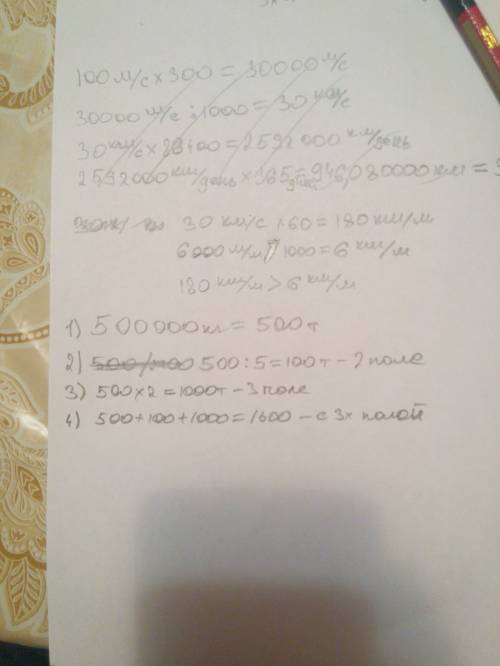 100 м/с × 300 = 30000 м/с
30000 м/с : 1000 = 30 км/с
30 км/с × 86400 = 2592000 км/день
2592000 км/день × 365 = 946080000 км = 3
30 км/с × 60 = 180 км/м
6000 м/м : 1000 = 6 км/м
180 км/м > 6 км/м
1) 500000кг = 500т
2) 500 : 5 = 100т - 2 поле
3) 500 × 2 = 1000т - 3 поле
4) 500 + 100 + 1000 = 1600 - с 3х полой